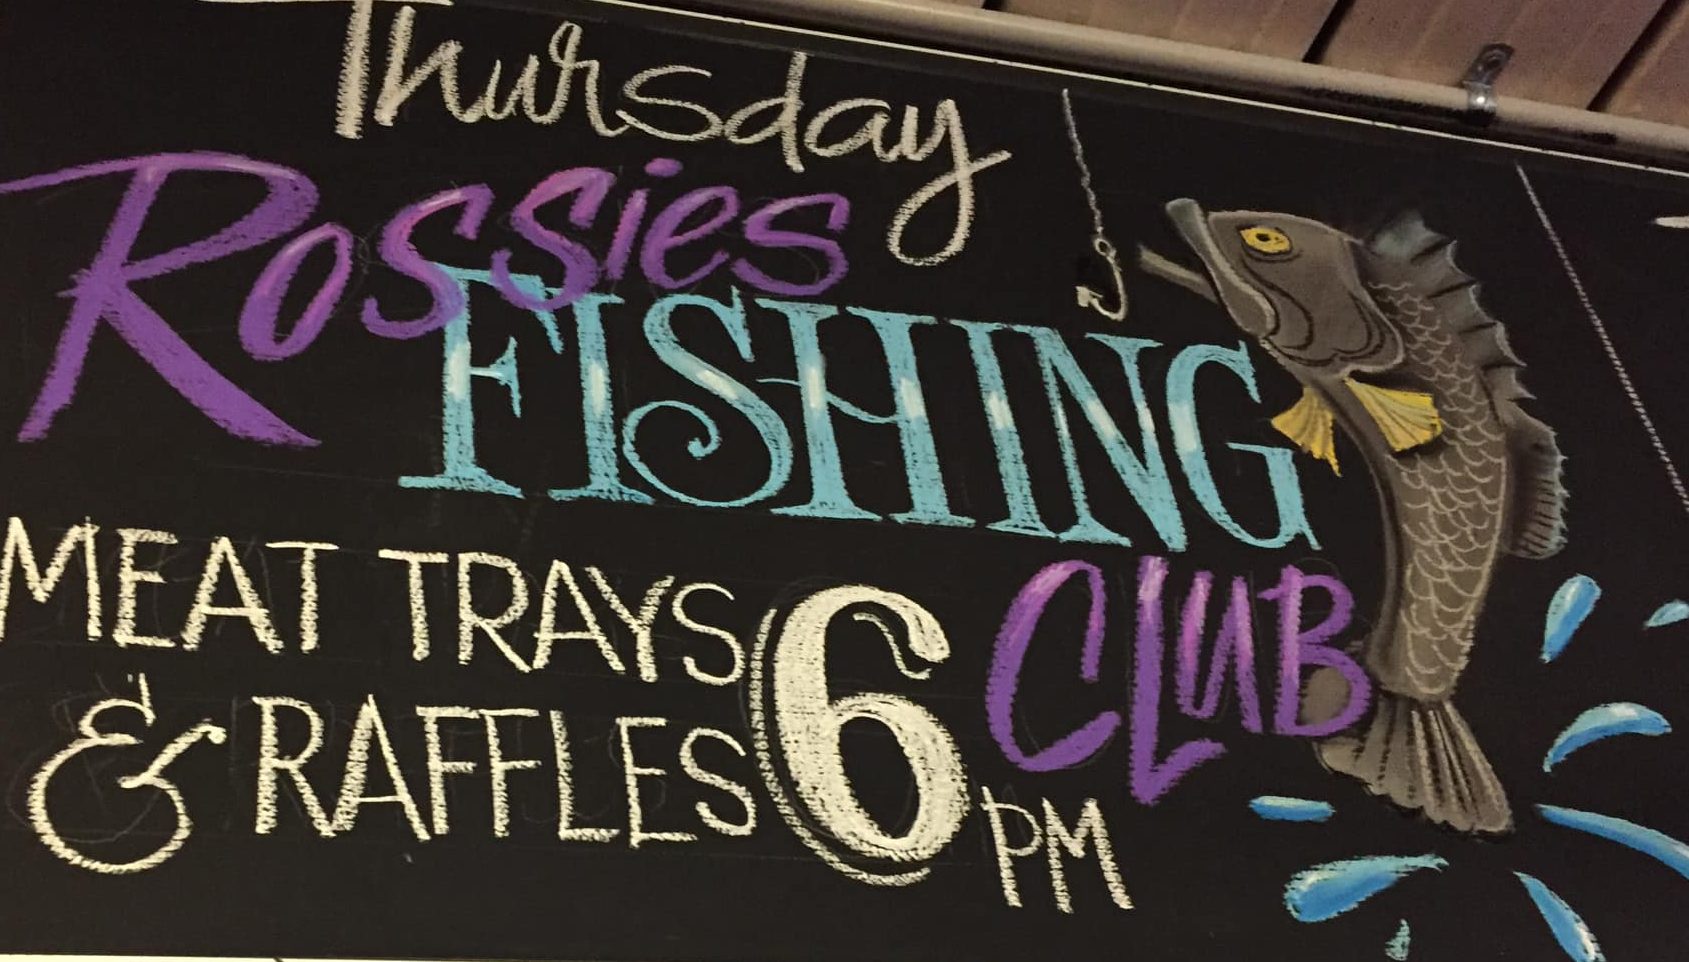 Thursday
Rossies
FISHING
CLUB
MEAT TRAYS
& RAFFLES
6 PM